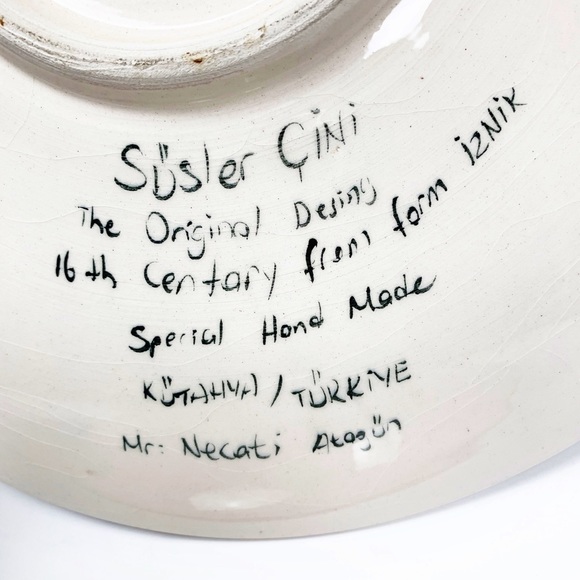 Süsler Çini
The Original Desing
16th Century from form İZNİK
Special Hand Made
KÜTAHYA / TÜRKİYE
Mr: Necati Atagün